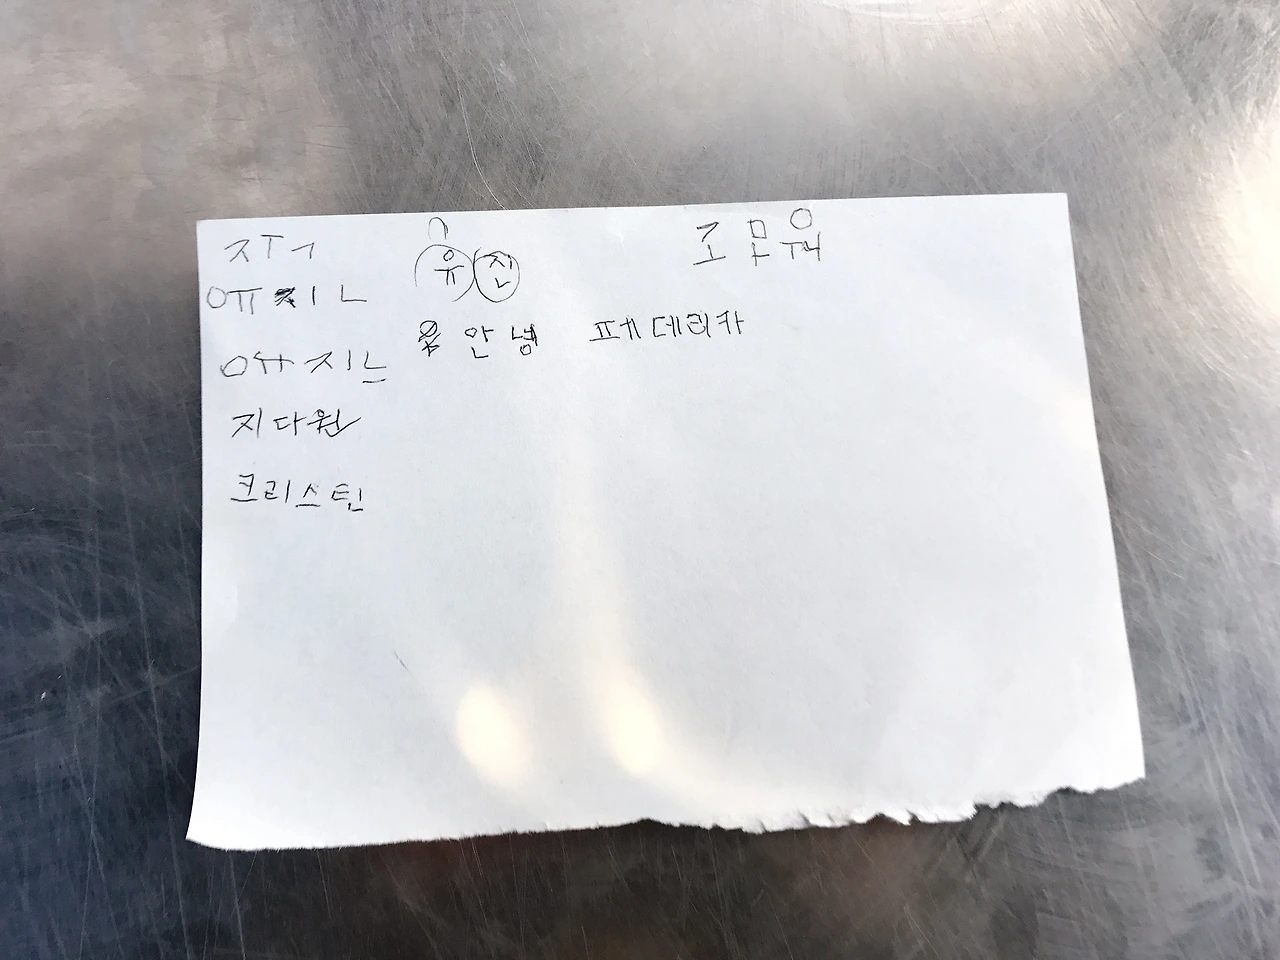 ㅈㅜㄱ
유진
조
ㅇㅠ ㅈㅣㄴ
안녕 페데리카
ㅇㅠㅈㅣㄴ
지다원
크리스틴